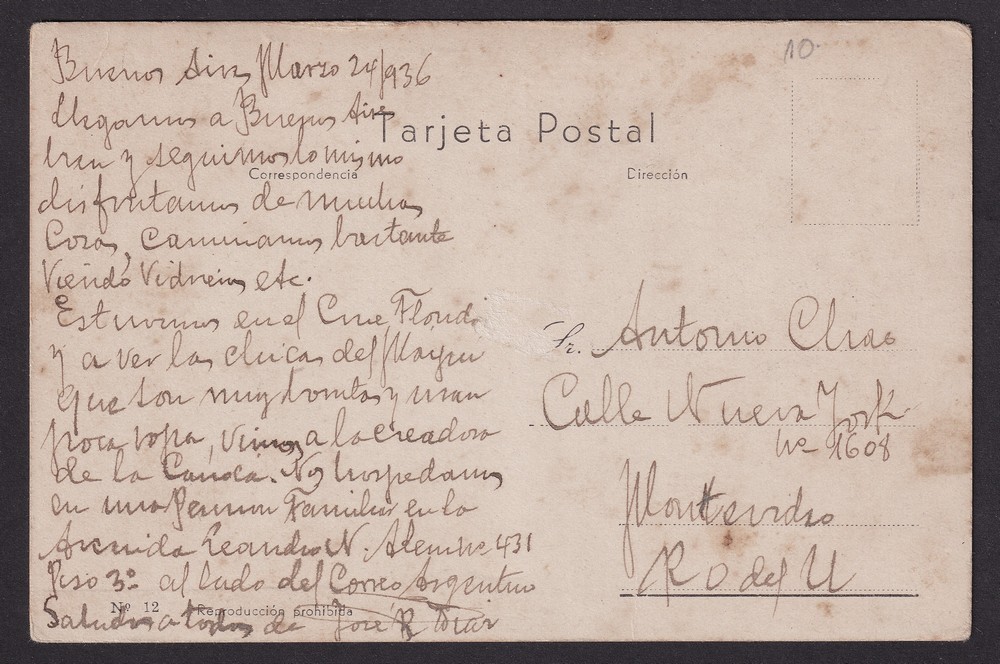 10.
Buenos Aires Marzo 24/936
Llegamos a Buenos Aires
bien y seguimos lo mismo
disfrutamos de muchas
Cosas, caminamos bastante
Viendo Vidrieras etc.
Estuvimos en el Cine Florida
y a ver las chicas del Maipu
que son muy bonitas y usan
poca ropa, vimos a la creadora
de la Conga. Nos hospedamos
en una Pension Familiar en la
Avenida Leandro N. Alem No 431
Piso 3o al lado del Correo Argentino
Saludos a todos de José R Diaz
Tarjeta Postal
Correspondencia
Dirección
Sr. Antonio Chao
Calle Nueva York
No 1608
Montevideo
R O del U
Nº 12 Reproducción prohibida